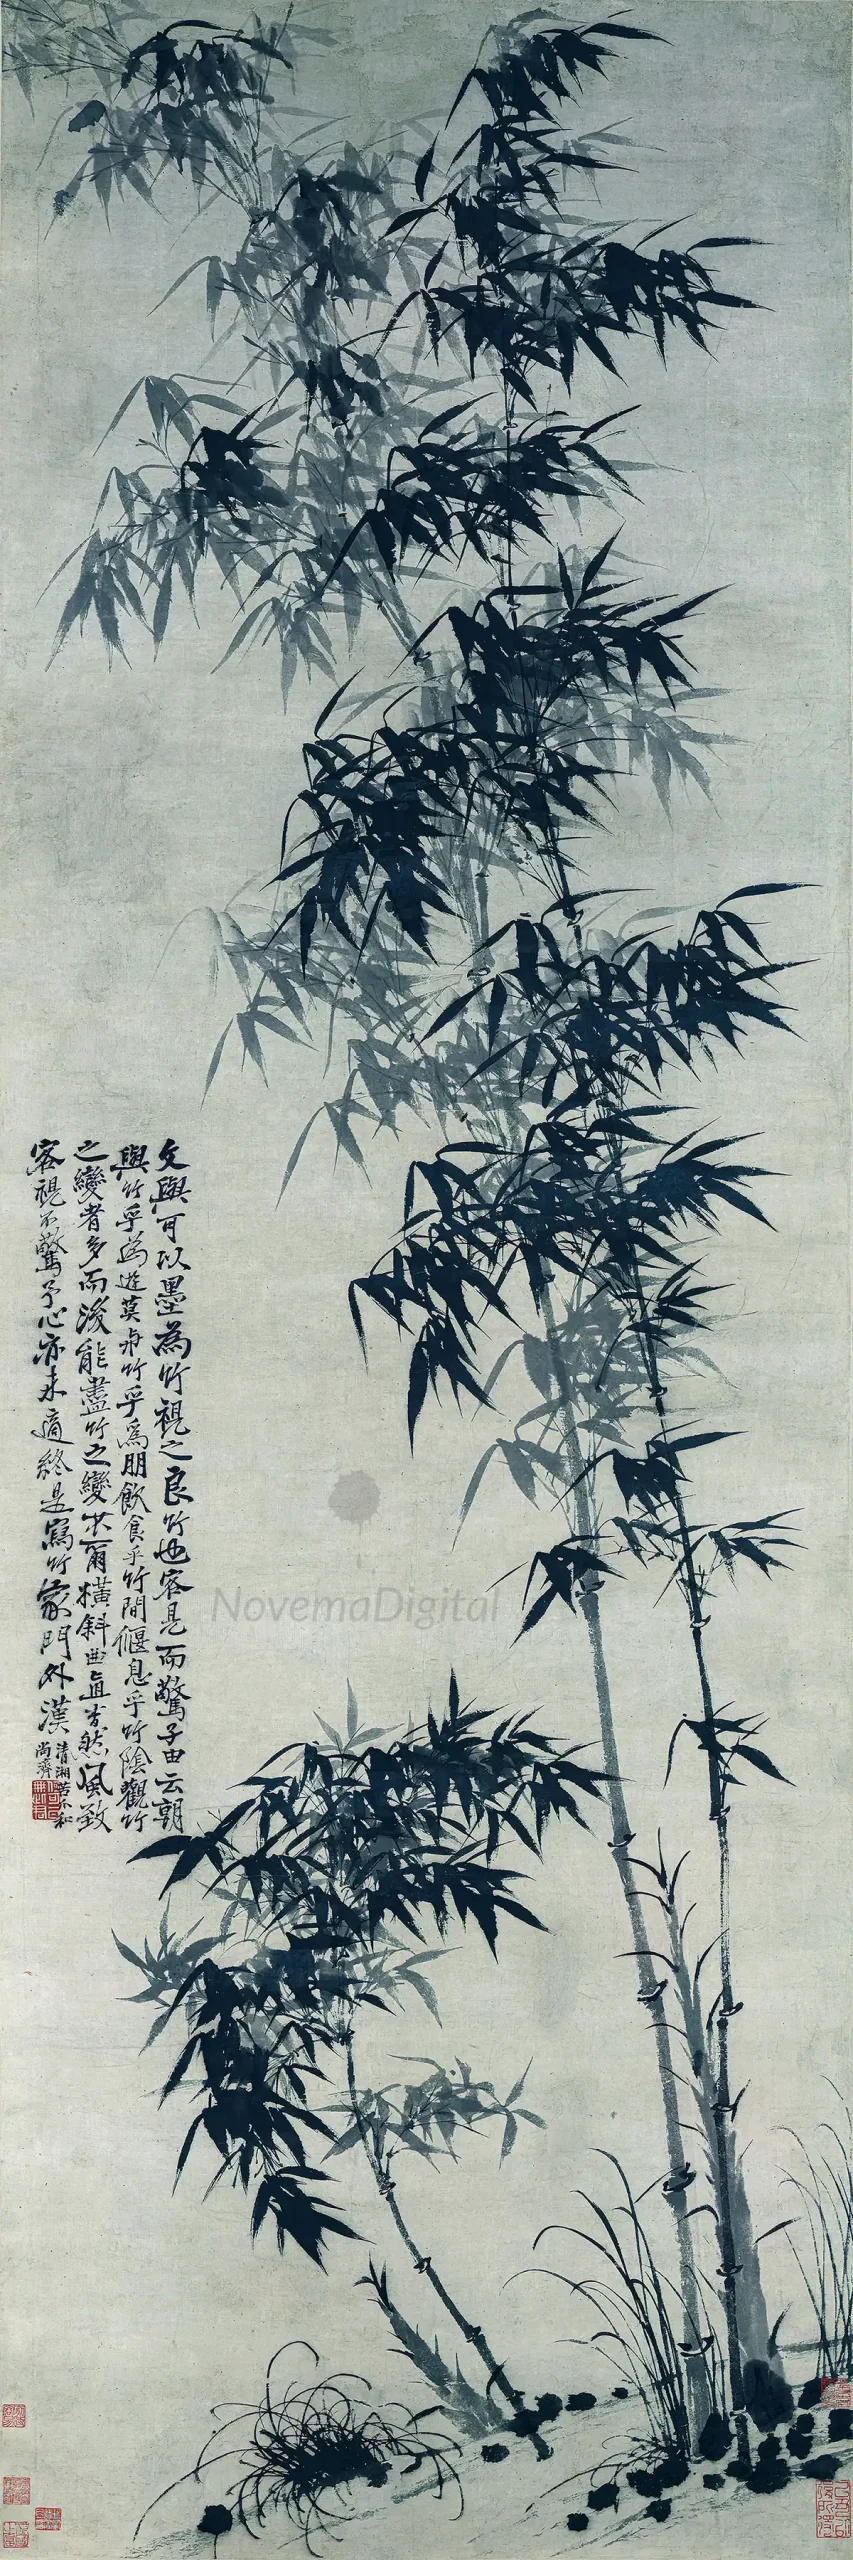 文與可以墨為竹視之良竹也客見而驚子由云朝
與竹乎為遊莫與竹乎為朋飲食乎竹間偃息乎竹陰觀竹
之變者多而後能盡竹之變若爾橫斜曲直皆然風致
客視不驚予心亦未適終是寫竹家門外漢
清湘苦瓜和
尚濟
NovemaDigital